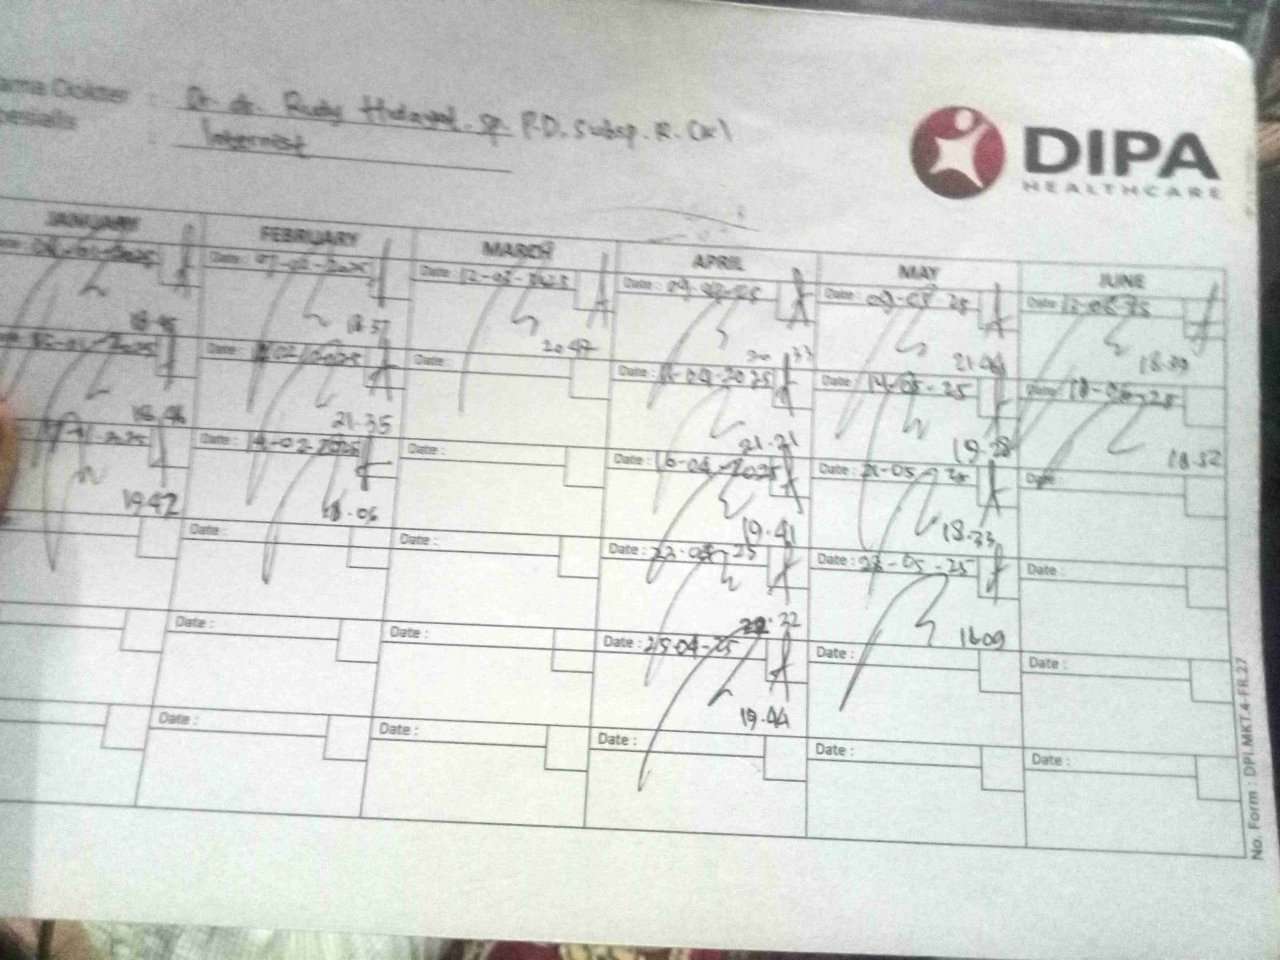 ama Dokter : Dr. dr. Rudy Hidayat. Sp. P.D. Subsp. R. (K)
pesialis : Internist
DIPA
HEALTHCARE
JANUARY FEBRUARY MARCH APRIL MAY JUNE
Date : 07-02-2025 Date : 12-03-2025 Date : 09-04-25 Date : 09-05-25 Date : 12-06-25
18.45 18.37 20.47 20.33 21.46 18.39
Date : 02 2025 Date : Date : -04-2025 Date : 14-05-25 Date : 18-06-25
18.46 21.35 21.21 19.28 18.52
Date : 14-02-2025 Date : Date : 16-04-2025 Date : 21-05-25 Date :
19.42 18.06 19.41 18.33
Date : Date : Date : 23-04-25 Date : 28-05-25 Date :
22.32 18.09
Date : Date : Date : 25-04-25 Date : Date :
19.44
Date : Date : Date : Date : Date :
No. Form : DPI.MKT.4-FR.27